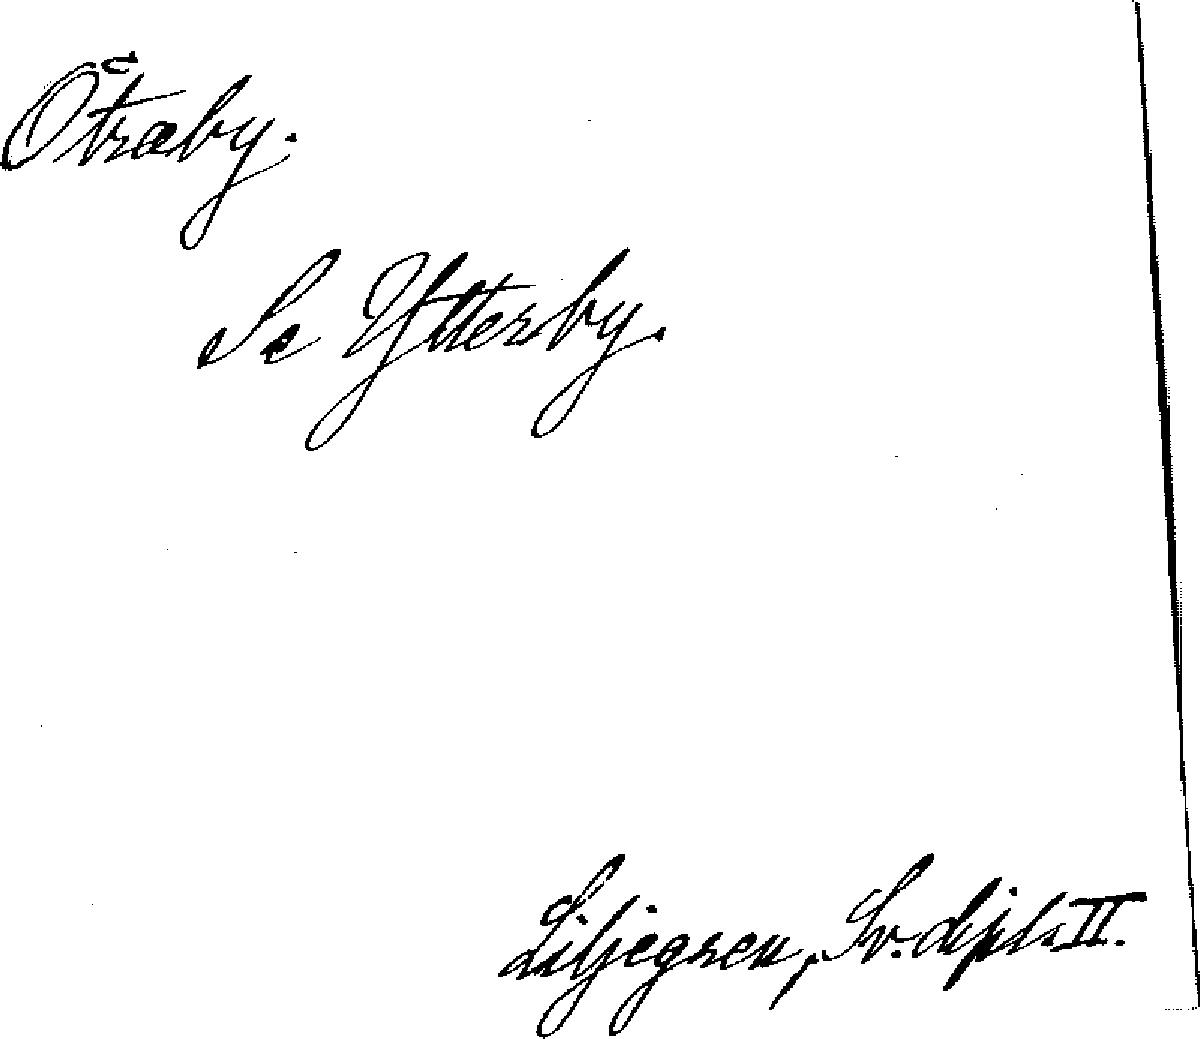 Otræby.
Se Ytterby.
Liljegren, Sv. dipl. II.